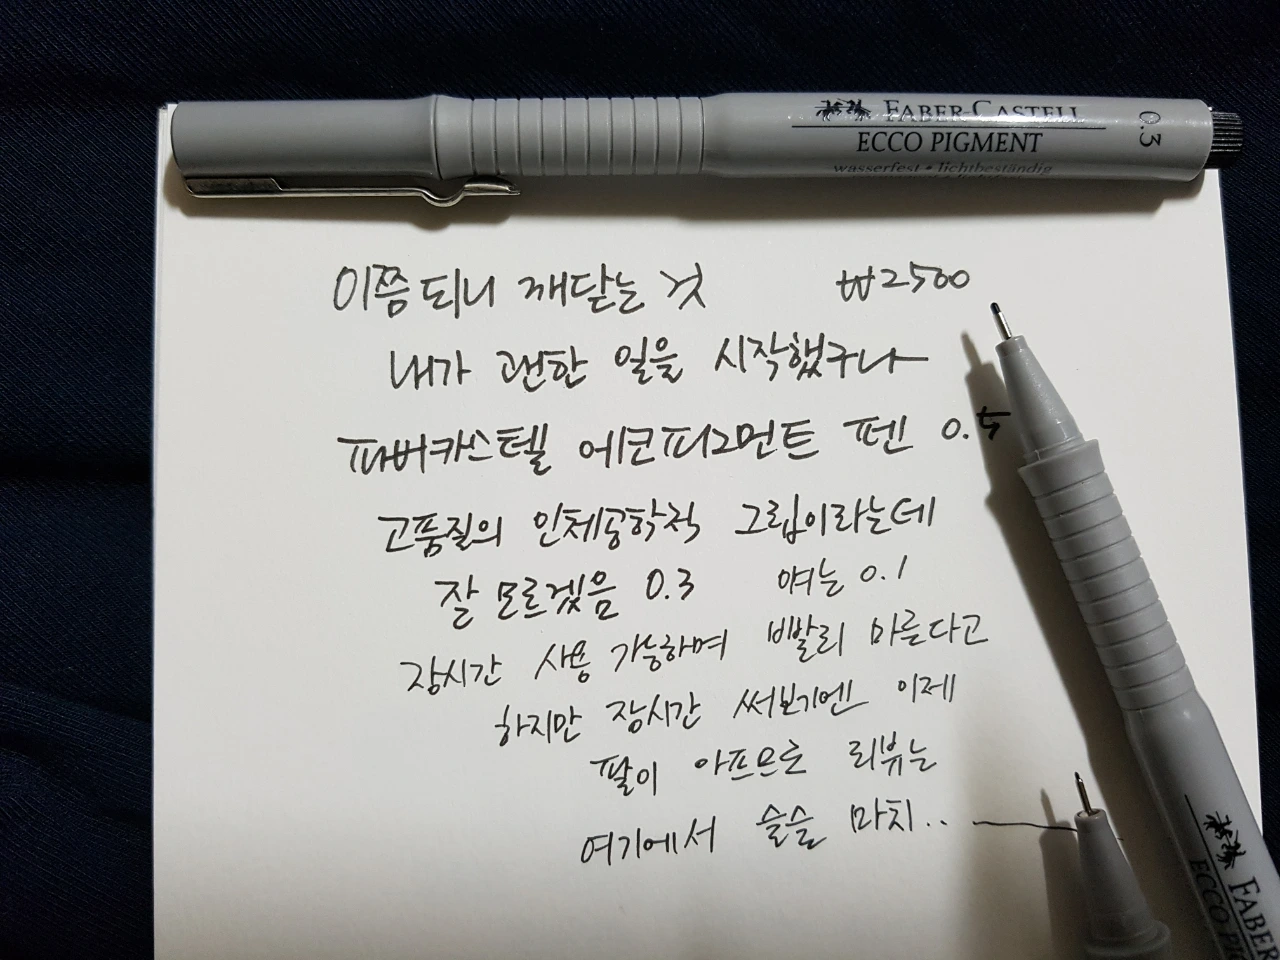 FABER-CASTELL 0.3
ECCO PIGMENT
wasserfest • lichtbeständig
이쯤되니 깨닫는 것 ₩2500
내가 괜한 일을 시작했구나
파버카스텔 에코피그먼트 펜 0.5
고품질의 인체공학적 그립이라는데
잘 모르겠음 0.3 얘는 0.1
장시간 사용 가능하며 빨리 마른다고
하지만 장시간 써보기엔 이제
팔이 아프므로 리뷰는
여기에서 슬슬 마치..
FABER
ECCO PIG